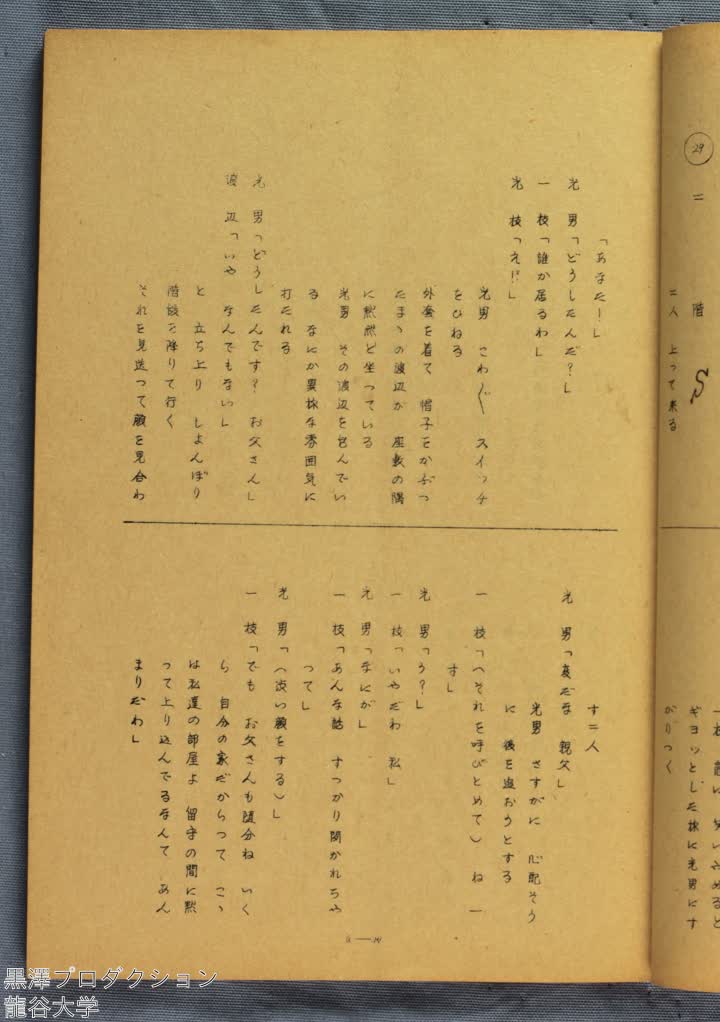 29
二階
二人 上って来る
一枝 話に 笑いやめると
ギヨッとした様に光男にす
がりつく
「あなた！」
光 男「どうしたんだ？」
一 枝「誰か居るわ」
光 枝「え!?」
光男 こわ〴〵 スイッチ
をひねる
外套を着て 帽子をかぶつ
たまゝの渡辺が 座敷の隅
に黙然と坐つている
光男 その渡辺を包んでい
る なにか異様な雰囲気に
打たれる
光 男「どうしたんです？ お父さん」
渡 辺「いや なんでもない」
と 立ち上り しよんぼり
階段を降りて行く
それを見送つて顔を見合わ
す二人
光 男「変だな 親父」
光男 さすがに 心配そう
に 後を追おうとする
一 枝「（それを呼びとめて） ね ー
す」
光 男「う？」
一 枝「いやだわ 私」
光 男「なにが」
一 枝「あんな話 すつかり聞かれちや
つて」
光 男「（渋い顔をする）」
一 枝「でも お父さんも随分ね いく
ら 自分の家だからつて こゝ
は私達の部屋よ 留守の間に黙
つて上り込んでるなんて あん
まりだわ」
黒澤プロダクション
龍谷大学